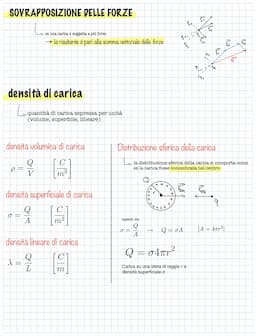 SOVRAPPOSIZIONE DELLE FORZE
se una carica è soggetta a più forze
→ la risultante è pari alla somma vettoriale delle forze
densità di carica
quantità di carica espressa per unità
(volume, superficie, lineare)
densità volumica di carica
ρ = Q/V [C/m³]
densità superficiale di carica
σ = Q/A [C/m²]
densità lineare di carica
λ = Q/L [C/m]
Distribuzione sferica della carica
la distribuzione sferica della carica si comporta come
se la carica fosse concentrata nel centro
Q
σ = Q/A → Q = σA [A = 4πr²]
Q = σ4πr²
Carica su una sfera di raggio r e
densità superficiale σ